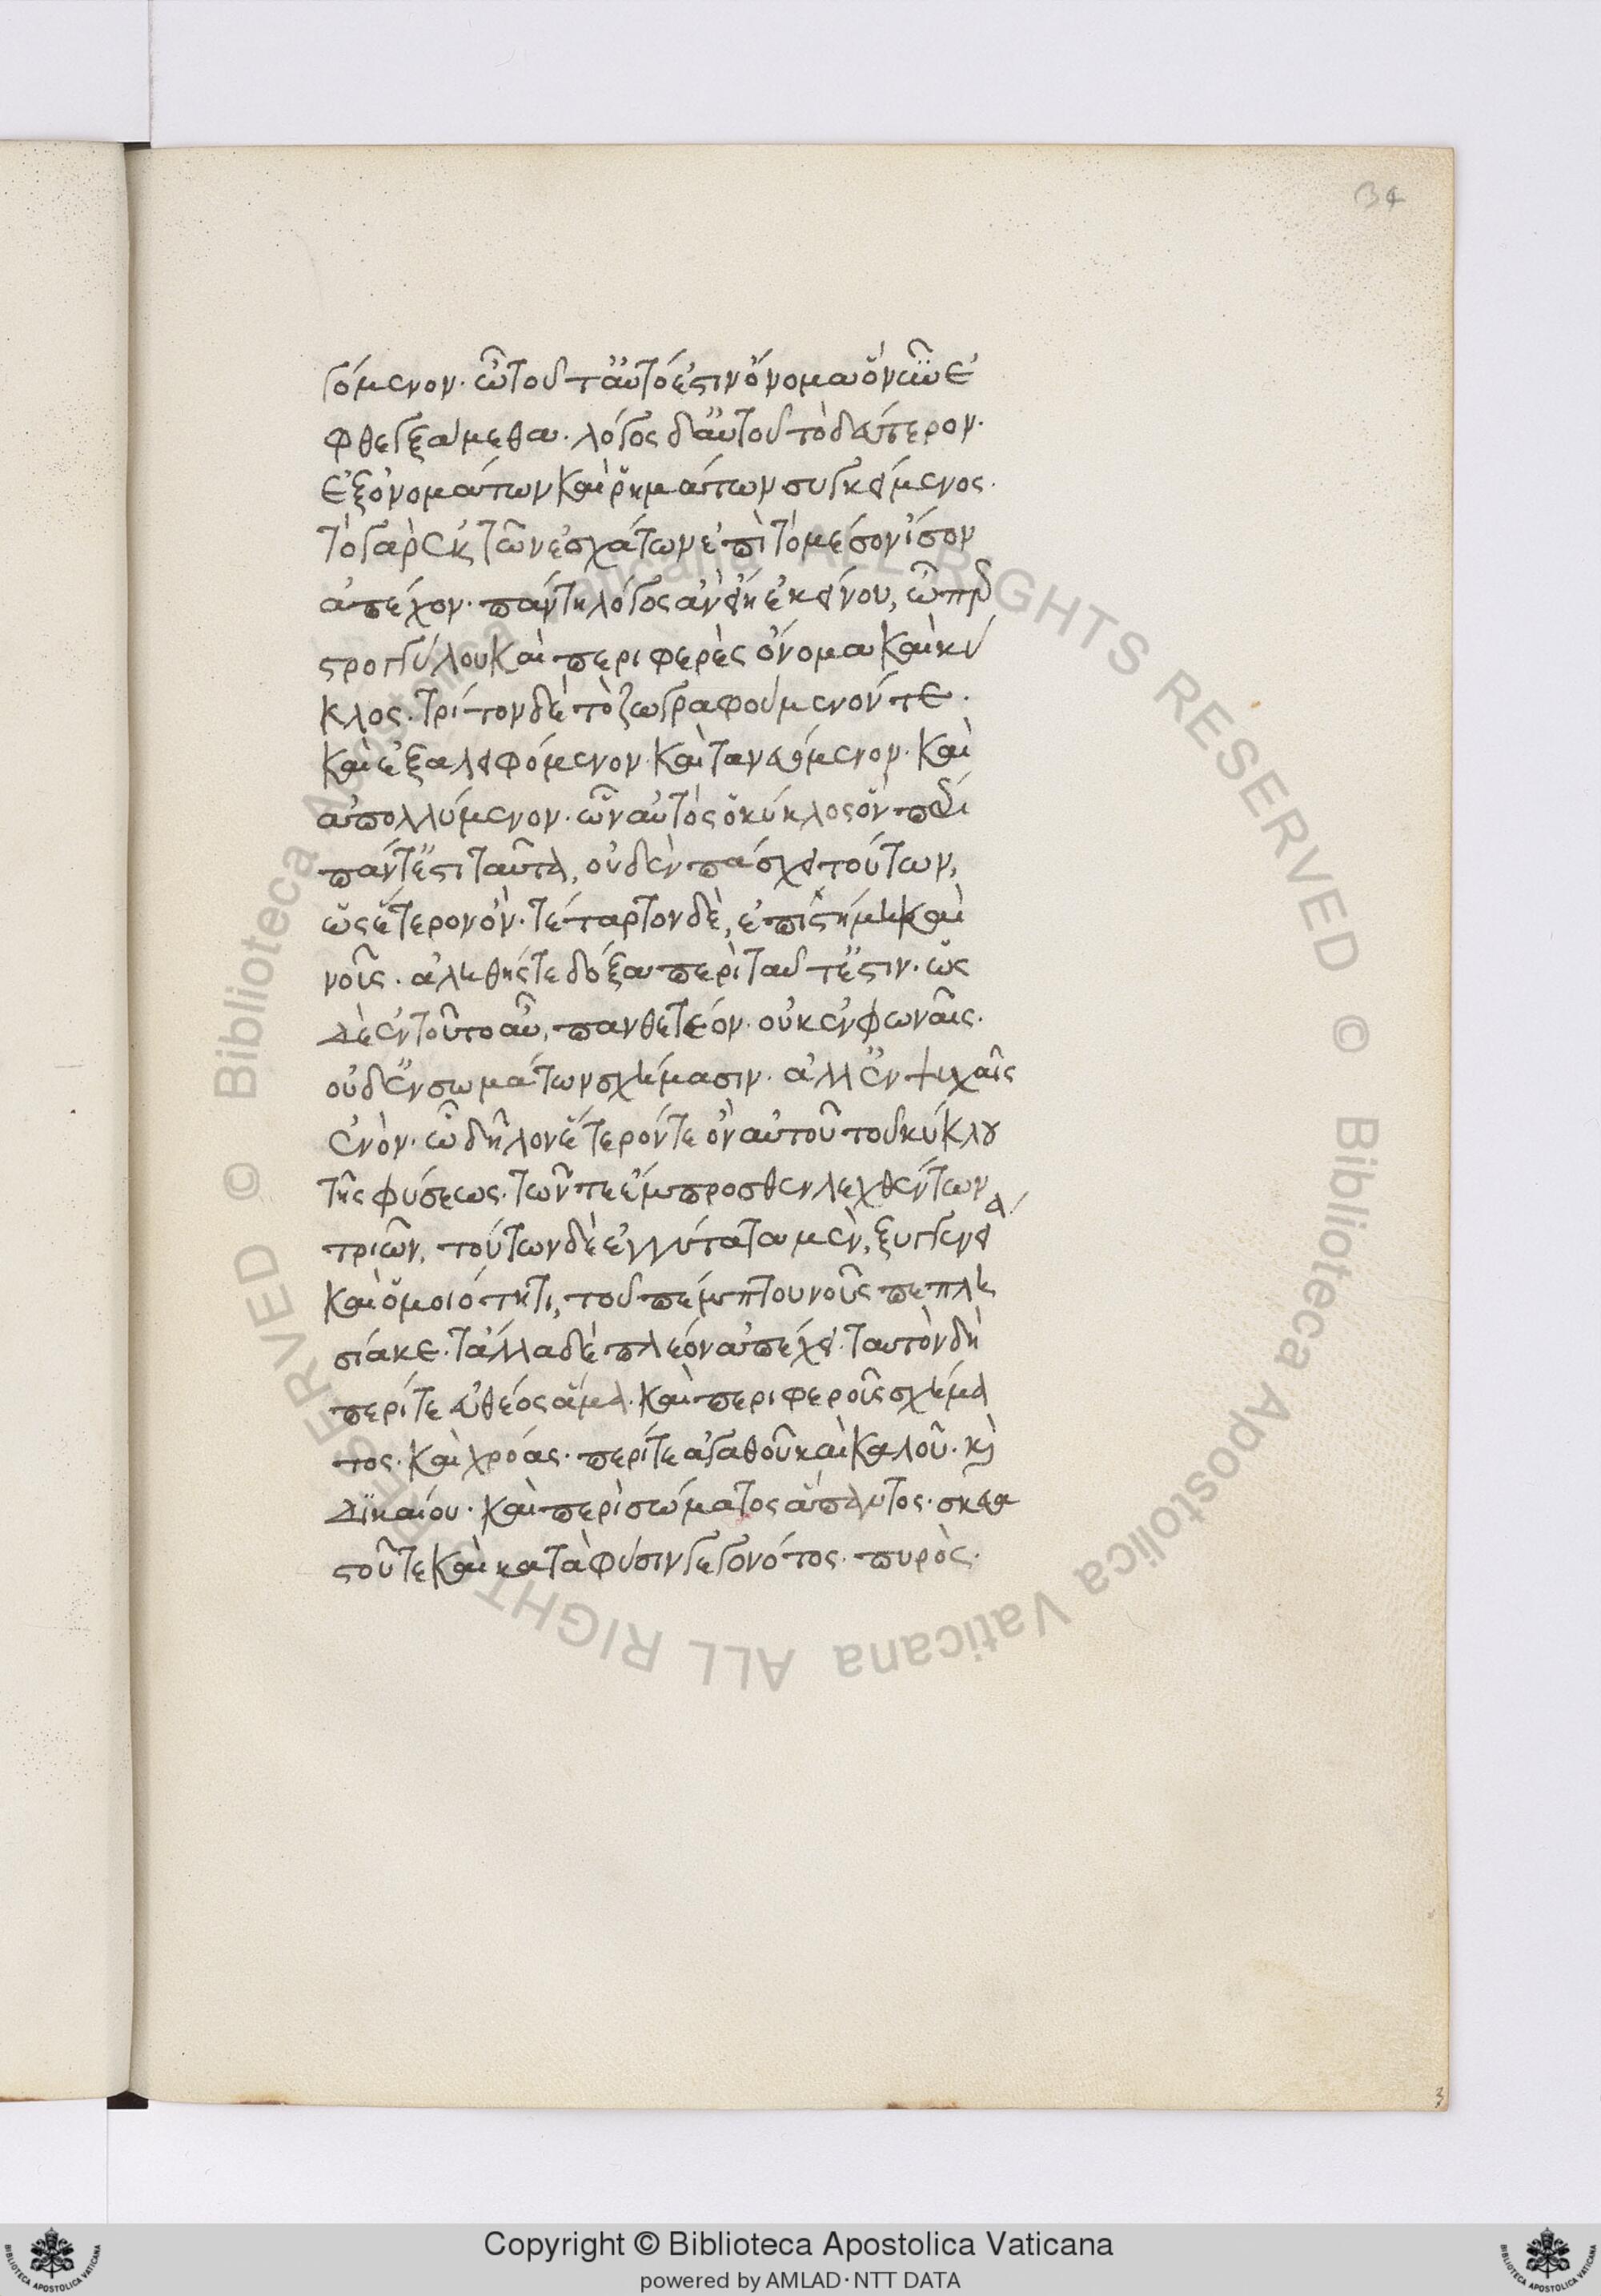 134
γόμενον· ᾧ τοῦτ' αὐτό ἐστιν ὄνομα ὃ νῦν ἐ
φθεγξάμεθα· λόγος δ' αὐτοῦ τὸ δεύτερον·
ἐξ ὀνομάτων καὶ ῥημάτων συγκείμενος·
τὸ γὰρ ἐκ τῶν ἐσχάτων ἐπὶ τὸ μέσον ἴσον
ἀπέχον· πάντη λόγος ἂν εἴη ἐκείνου, ᾧπερ
στρογγύλου καὶ περιφερὲς ὄνομα καὶ κύ
κλος· τρίτον δὲ τὸ ζωγραφούμενόν τε·
καὶ ἐξαλειφόμενον· καὶ τανευόμενον· καὶ
ἀπολλύμενον· ὧν αὐτὸς ὁ κύκλος ὃν περί
πάντ' ἔστι ταῦτα, οὐδὲν πάσχει τούτων,
ὡς ἕτερον ὄν· τέταρτον δὲ, ἐπιστήμη καὶ
νοῦς· ἀληθής τε δόξα περὶ ταῦτ' ἔστιν· ὡς
δὲ ἓν τοῦτο αὖ, παν θετέον· οὐκ ἐν φωναῖς·
οὐδ' ἐν σωμάτων σχήμασιν· ἀλλ' ἐν ψυχαῖς
ἐνὸν· ᾧ δῆλον ἕτερόν τε ὂν αὐτοῦ τοῦ κύκλου
τῆς φύσεως· τῶν τε ἔμπροσθεν λεχθέντων
τριῶν, τούτων δὲ ἐγγύτατα μὲν, ξυγγενεί
α
καὶ ὁμοιότητι, τοῦ πέμπτου νοῦς πεπλη
σίακε· τἄλλα δὲ πλέον ἀπέχει· ταυτὸν δὴ
περί τε εὐθέος ἅμα· καὶ περιφεροῦς σχήμα
τος· καὶ χρόας· περί τε ἀγαθοῦ καὶ καλοῦ· καὶ
δικαίου· καὶ περὶ σώματος ἅπαντος· σκευα
στοῦ τε καὶ κατὰ φύσιν γεγονότος· πυρὸς·
3
© Biblioteca Apostolica Vaticana ALL RIGHTS RESERVED
© Biblioteca Apostolica Vaticana ALL RIGHTS RESERVED
Copyright © Biblioteca Apostolica Vaticana
powered by AMLAD·NTT DATA
BIBLIOTECA APOSTOLICA VATICANA
BIBLIOTECA APOSTOLICA VATICANA